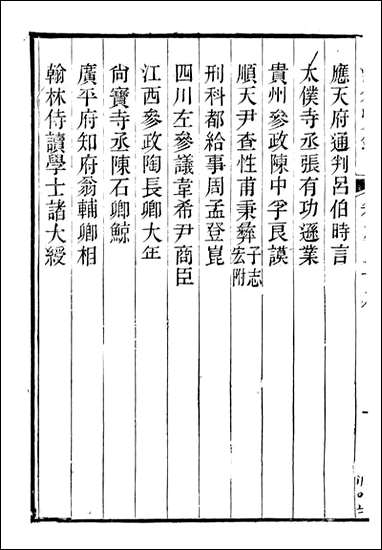 應天府通判呂伯時言
太僕寺丞張有功遜業
貴州參政陳中孚艮謨
順天尹查性甫秉彝子志宏附
刑科都給事周孟登崑
四川左參議韋希尹商臣
江西參政陶長卿大年
尙寶寺丞陳石卿鯨
廣平府知府翁輔卿相
翰林侍讀學士諸大綬